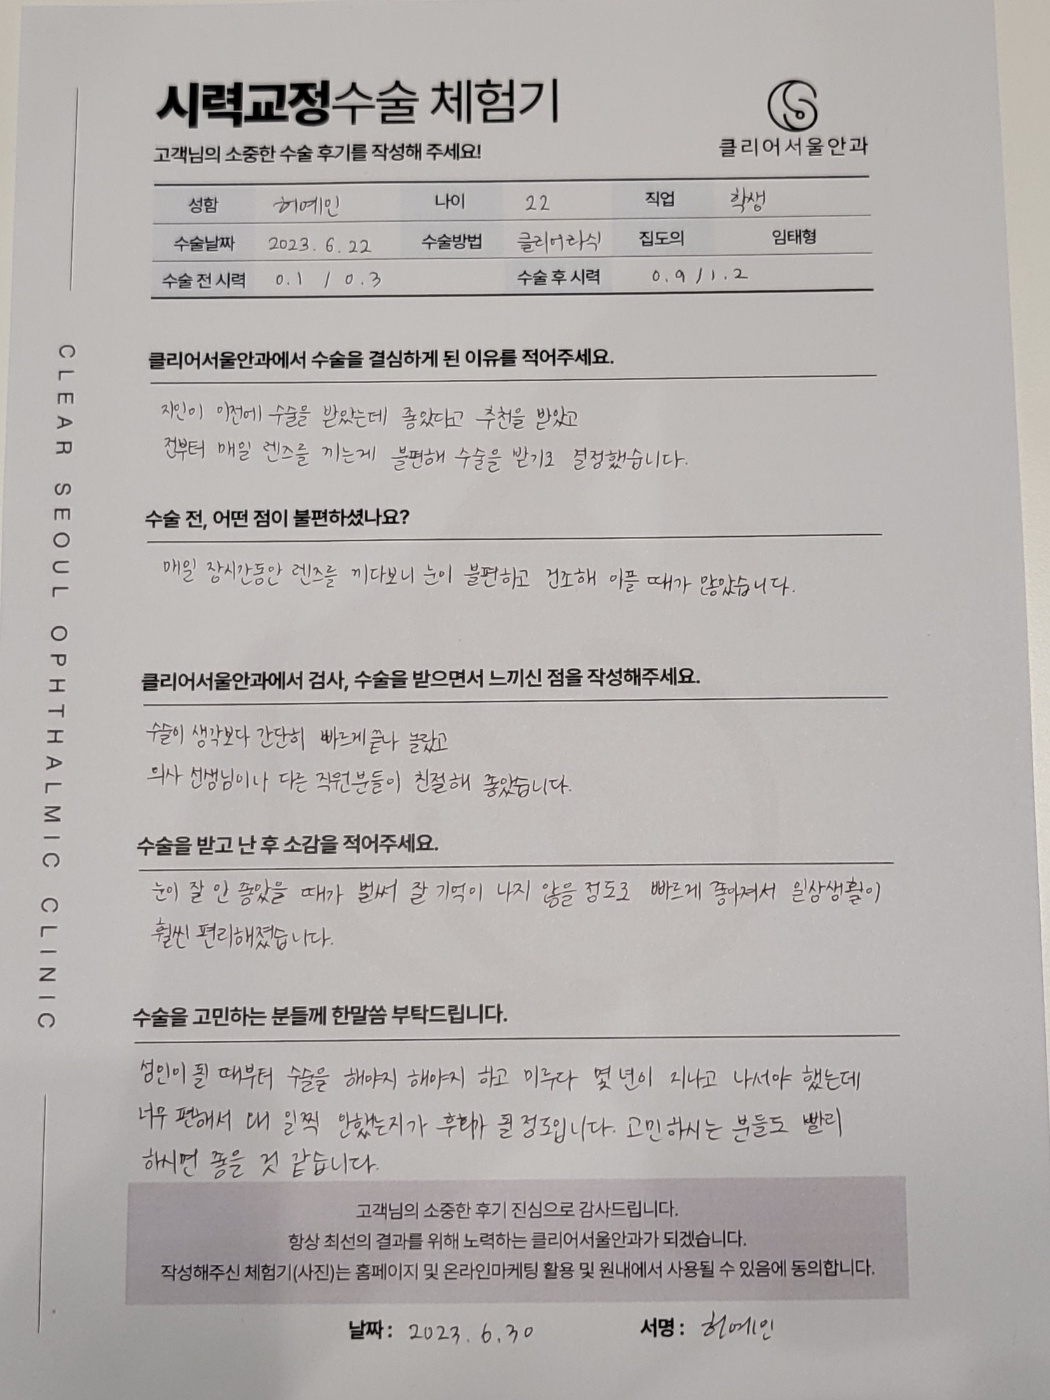 시력교정수술 체험기
고객님의 소중한 수술 후기를 작성해 주세요!
클리어서울안과
성함 허예인 나이 22 직업 학생
수술날짜 2023. 6. 22 수술방법 클리어라식 집도의 임태형
수술 전 시력 0.1 / 0.3 수술 후 시력 0.9 / 1.2
CLEAR SEOUL OPHTHALMIC CLINIC
클리어서울안과에서 수술을 결심하게 된 이유를 적어주세요.
지인이 이전에 수술을 받았는데 좋았다고 추천을 받았고
전부터 매일 렌즈를 끼는게 불편해 수술을 받기로 결정했습니다.
수술 전, 어떤 점이 불편하셨나요?
매일 장시간동안 렌즈를 끼다보니 눈이 불편하고 건조해 아플 때가 많았습니다.
클리어서울안과에서 검사, 수술을 받으면서 느끼신 점을 작성해주세요.
수술이 생각보다 간단히 빠르게 끝나 놀랐고
의사 선생님이나 다른 직원분들이 친절해 좋았습니다.
수술을 받고 난 후 소감을 적어주세요.
눈이 잘 안 좋았을 때가 벌써 잘 기억이 나지 않을 정도로 빠르게 좋아져서 일상생활이
훨씬 편리해졌습니다.
수술을 고민하는 분들께 한말씀 부탁드립니다.
성인이 될 때부터 수술을 해야지 해야지 하고 미루다 몇 년이 지나고 나서야 했는데
너무 편해서 왜 일찍 안했는지가 후회가 될 정도입니다. 고민하시는 분들도 빨리
하시면 좋을 것 같습니다.
고객님의 소중한 후기 진심으로 감사드립니다.
항상 최선의 결과를 위해 노력하는 클리어서울안과가 되겠습니다.
작성해주신 체험기(사진)는 홈페이지 및 온라인마케팅 활용 및 원내에서 사용될 수 있음에 동의합니다.
날짜 : 2023. 6. 30 서명 : 허예인